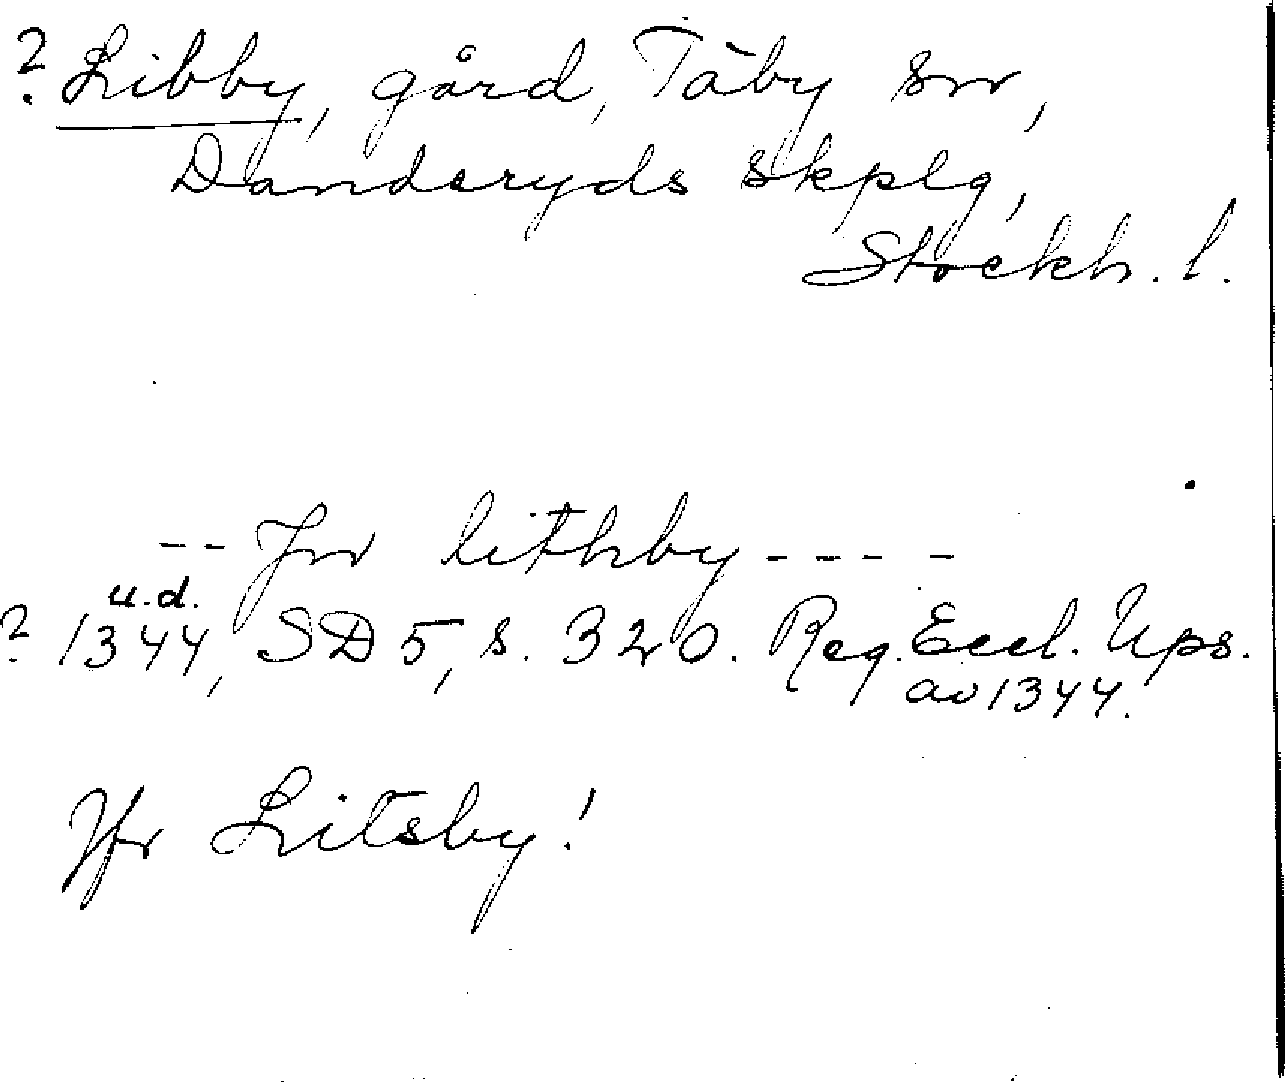 ? Libby, gård, Täby sn,
Danderyds skplg,
Stockh. l.
-- Jn lithby ----
u.d.
? 1344, SD 5, s. 320. Reg. Eccl. Ups.
av 1344.
Jfr Litsby!